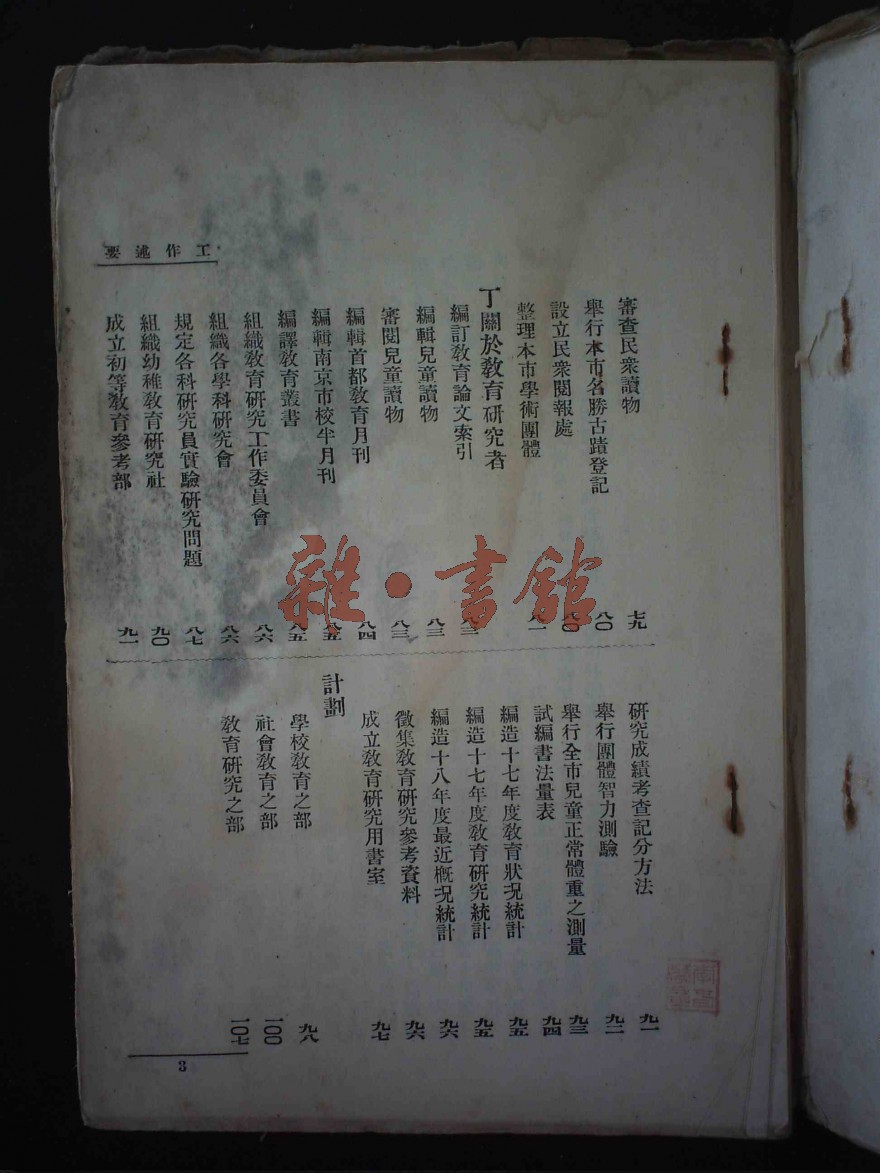 工作述要
審查民衆讀物 七九
舉行本市名勝古蹟登記 八〇
設立民衆閱報處 八〇
整理本市學術團體 八一
丁關於教育研究者
編訂教育論文索引 八三
編輯兒童讀物 八三
審閱兒童讀物 八三
編輯首都教育月刊 八四
編輯南京市校半月刊 八五
編譯教育叢書 八五
組織教育研究工作委員會 八六
組織各學科研究會 八六
規定各科研究員實驗研究問題 八七
組織幼稚教育研究社 九〇
成立初等教育參考部 九一
研究成績考查記分方法 九一
舉行團體智力測驗 九二
舉行全市兒童正常體重之測量 九三
試編書法量表 九四
編造十七年度教育狀況統計 九五
編造十七年度教育研究統計 九五
編造十八年度最近概況統計 九六
徵集教育研究參考資料 九六
成立教育研究用書室 九七
計劃
學校教育之部 九八
社會教育之部 一〇〇
教育研究之部 一〇七
3
雜·書館